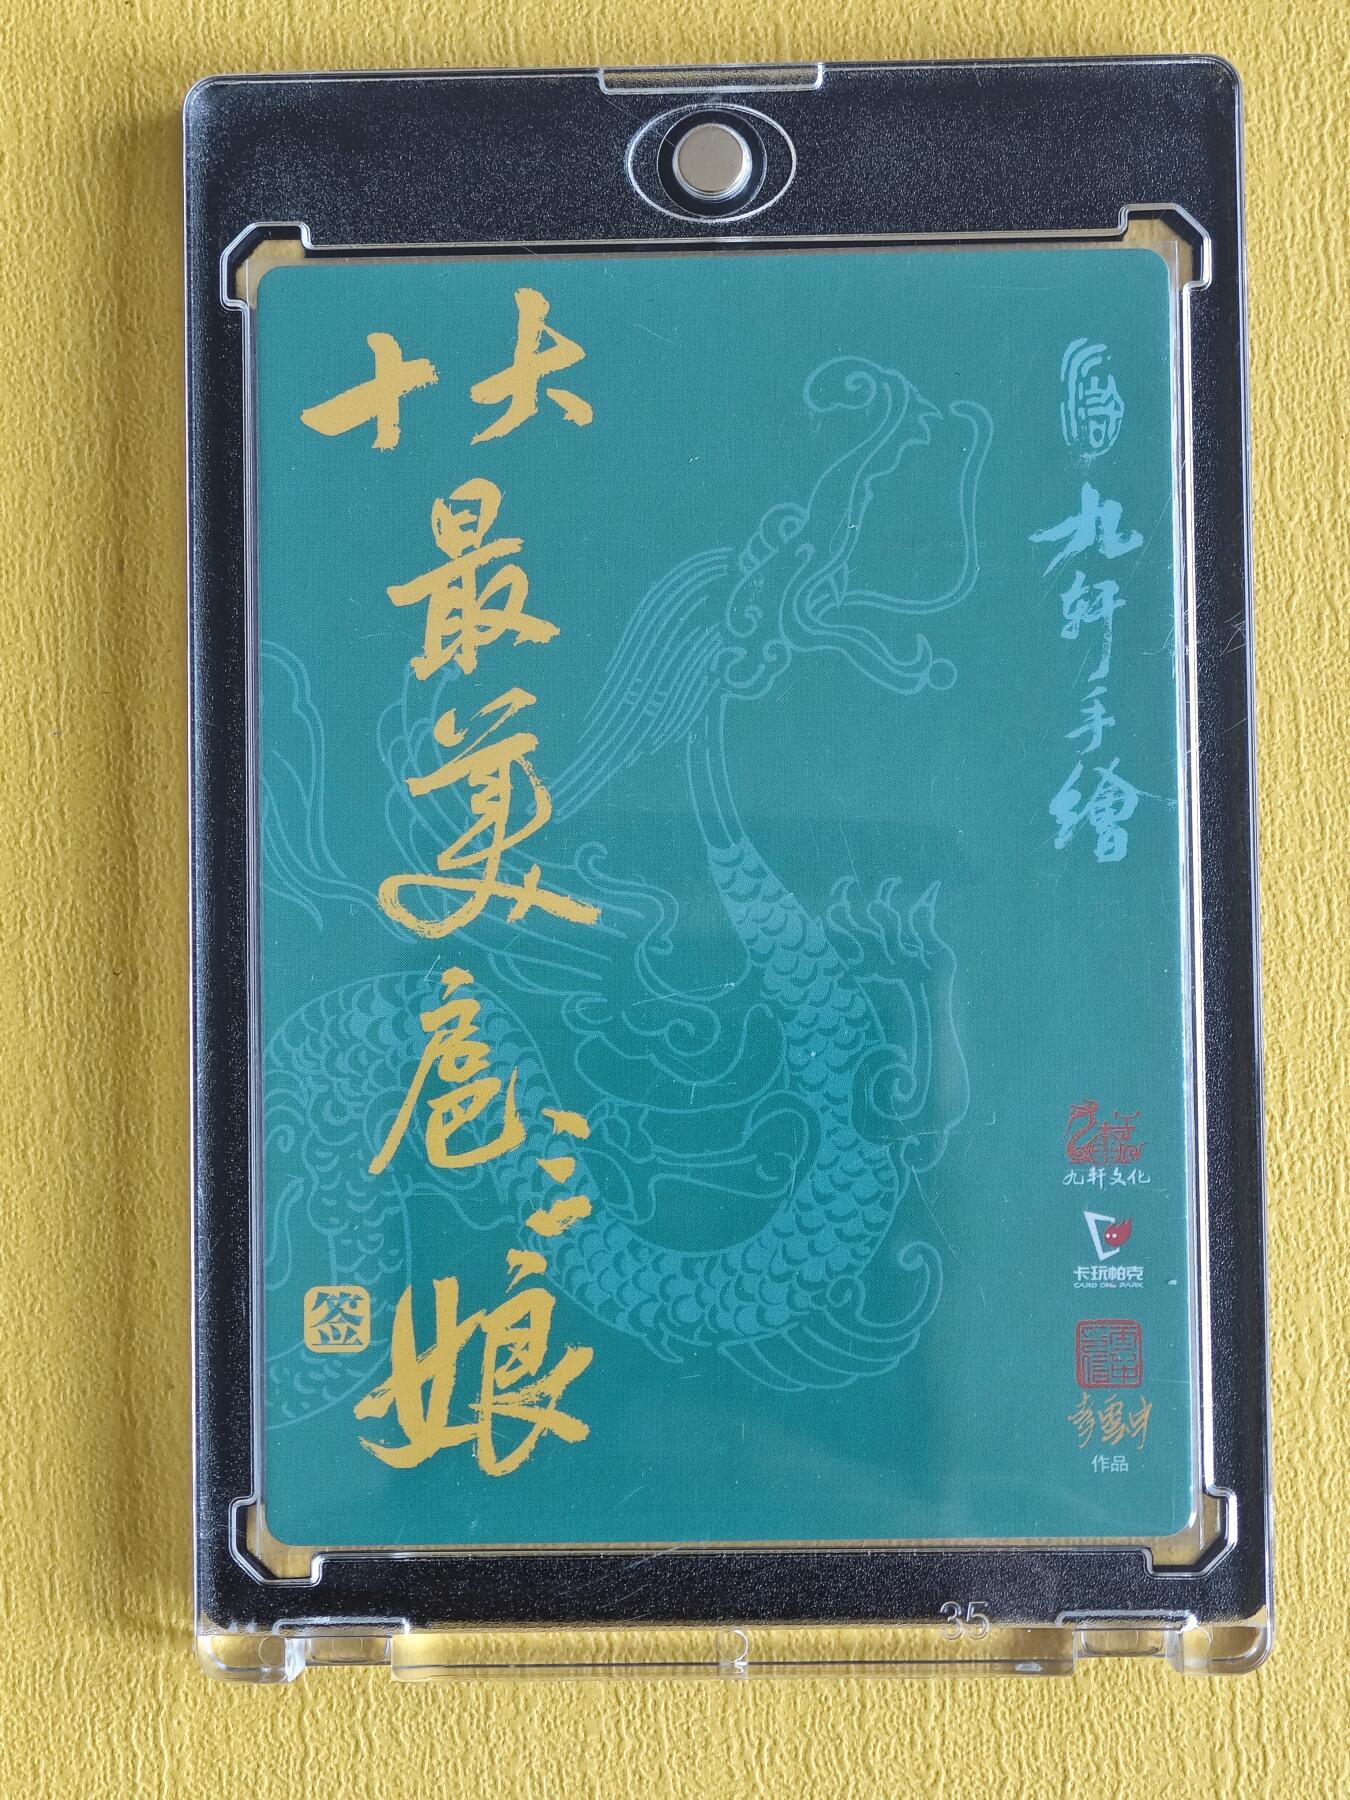 十大
最
美
扈
三
娘
签
九
轩
手
繪
九轩文化
卡玩帕克
CARD ONE PARK
李雲中
作品
35